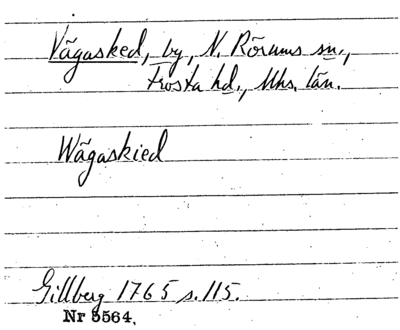 Vägasked, by, N. Rörums sn.,
Frosta hd., Mhs. län.
Wägaskied
Gillberg 1765 s. 115.
Nr 5564.